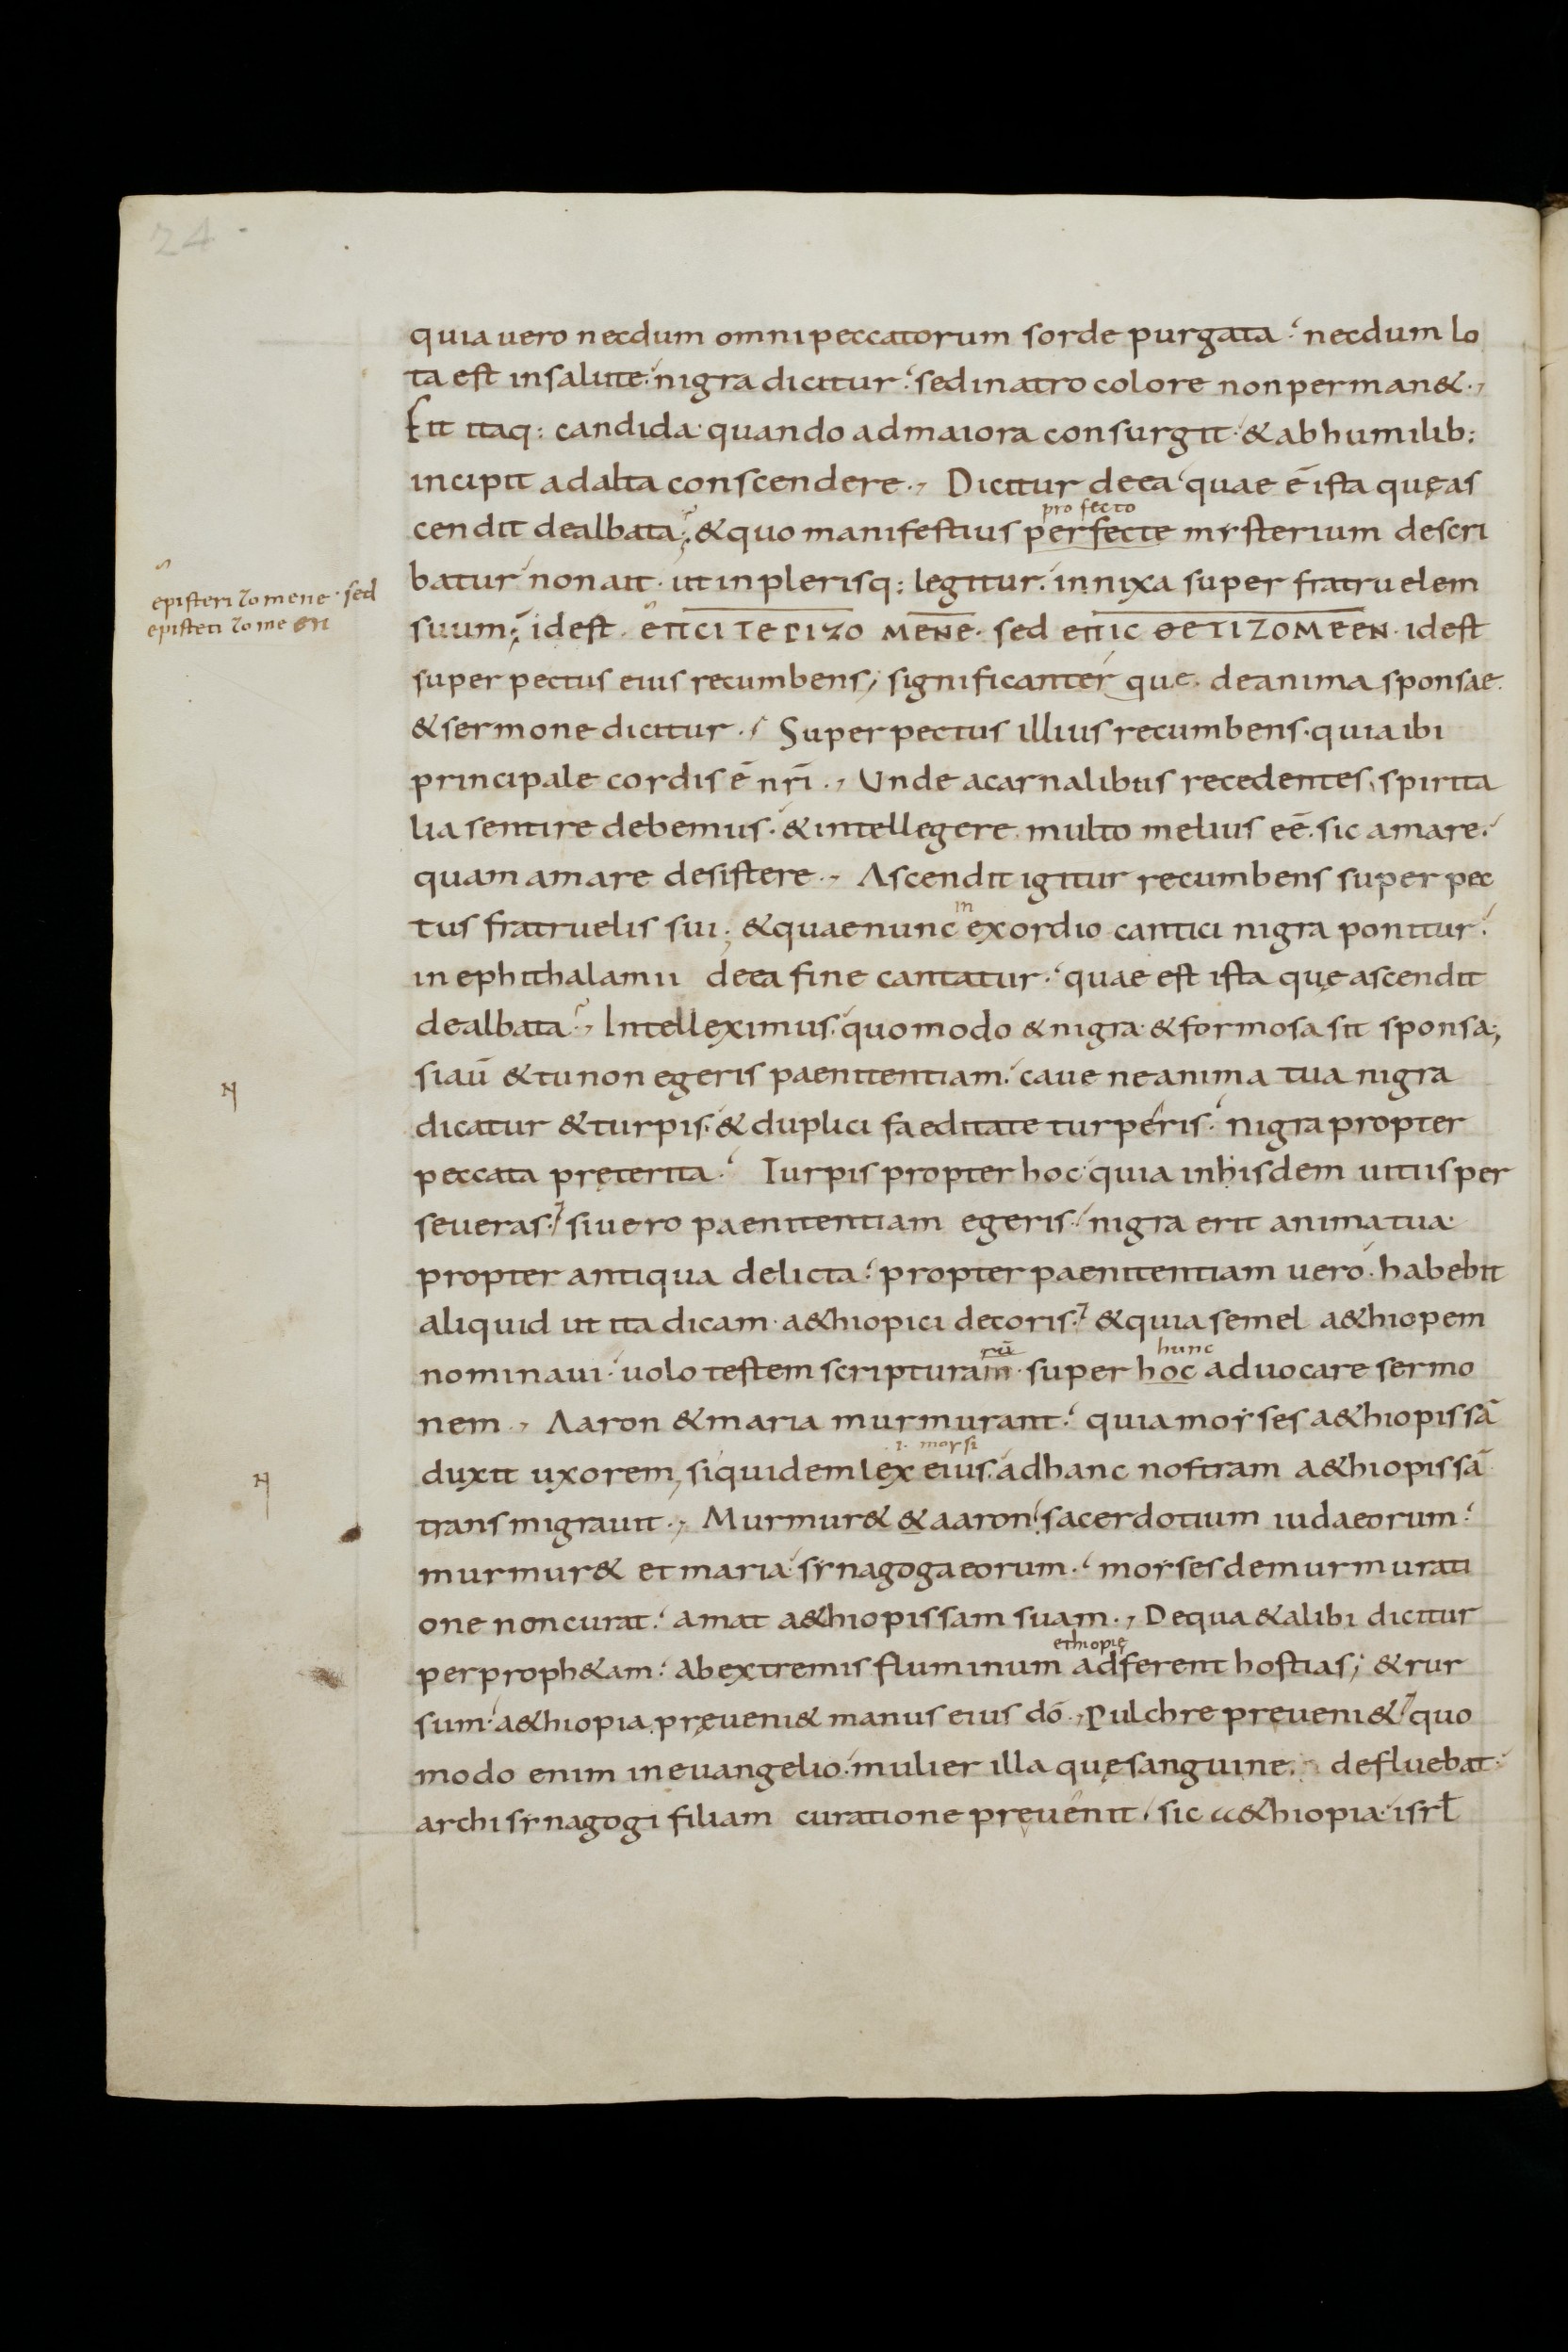 24
quia uero necdum omni peccatorum sorde purgata. necdum lo
ta est in salute. nigra dicitur. sed in atro colore non perman&.,
Fit itaq: candida. quando ad maiora consurgit. & ab humilib:
incipit ad alta conscendere., Dicitur de ea. quae ē ista quę as
profecto
cendit dealbata; & quo manifestius perfecte mẏsterium descri
batur non ait. ut in plerisq: legitur. innixa super fratruelem
episteri zomene. sed
episteti zome en
suum; id est. ΕΠΙCΙΤΕΡΙΖΟ ΜΕΝΕ. sed ΕΠΙC ΘΕΤΙΖΟΜΕΕΝ. id est
super pectus eius recumbens; significanter que. de anima sponsae.
& sermone dicitur., Super pectus illius recumbens. quia ibi
principale cordis ē nr̄i., Unde a carnalibus recedentes, spirita
lia sentire debemus. & intellegere. multo melius eē. sic amare.
quam amare desistere., Ascendit igitur recumbens super pec
in
tus fratruelis sui; & quae nunc exordio cantici nigra ponitur.
in ephithalamii de ea fine cantatur. quae est ista quę ascendit
dealbata., Intelleximus. quomodo & nigra & formosa sit sponsa;
si aū & tu non egeris paenitentiam. caue ne anima tua nigra
dicatur & turpis. & duplici faeditate turperis. nigra propter
peccata pręterita. Turpis propter hoc. quia in hisdem uitiis per
seueras. si uero paenitentiam egeris. nigra erit anima tua
propter antiqua delicta. propter paenitentiam uero. habebit
aliquid ut ita dicam. a&hiopici decoris. & quia semel a&hiopem
rū hunc
nominaui. uolo testem scripturam. super hoc aduocare sermo
nem., Aaron & maria murmurant. quia moẏses a&hiopissā
.i. moysi
duxit uxorem, siquidem lex eius. ad hanc nostram a&hiopissā
transmigrauit., Murmur& & aaron. sacerdotium iudaeorum.
murmur& et maria. sẏnagoga eorum. moẏses de murmurati
one non curat. amat a&hiopissam suam., De qua & alibi dicitur
ethiopię
per proph&am. ab extremis fluminum adferent hostias; & rur
sum. a&hiopia pręueni& manus eius dō., Pulchre preueni&. quo
modo enim in euangelio. mulier illa quę sanguine. defluebat.
archisẏnagogi filiam curatione pręuenit. sic a&hiopia. isrł